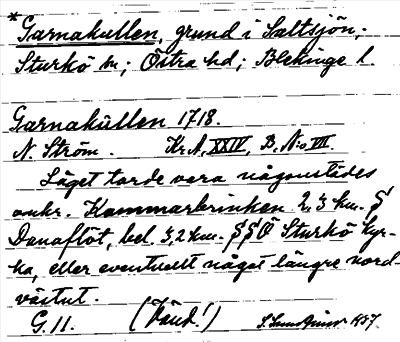 *Garnakullen, grund i Saltsjön;
Sturkö sn; Östra hd; Blekinge l.
Garnakullen 1718.
N. Ström. Kr. A, XXIV, B, No VII.
Läget torde vara någonstädes
omkr. Kammarbrinken 2,3 km. S
Danaflöt, bel. 3,2 km. SSÖ Sturkö kyr-
ka, eller eventuellt något längre nord-
västut.
G. 11. (Vänd!) 1937